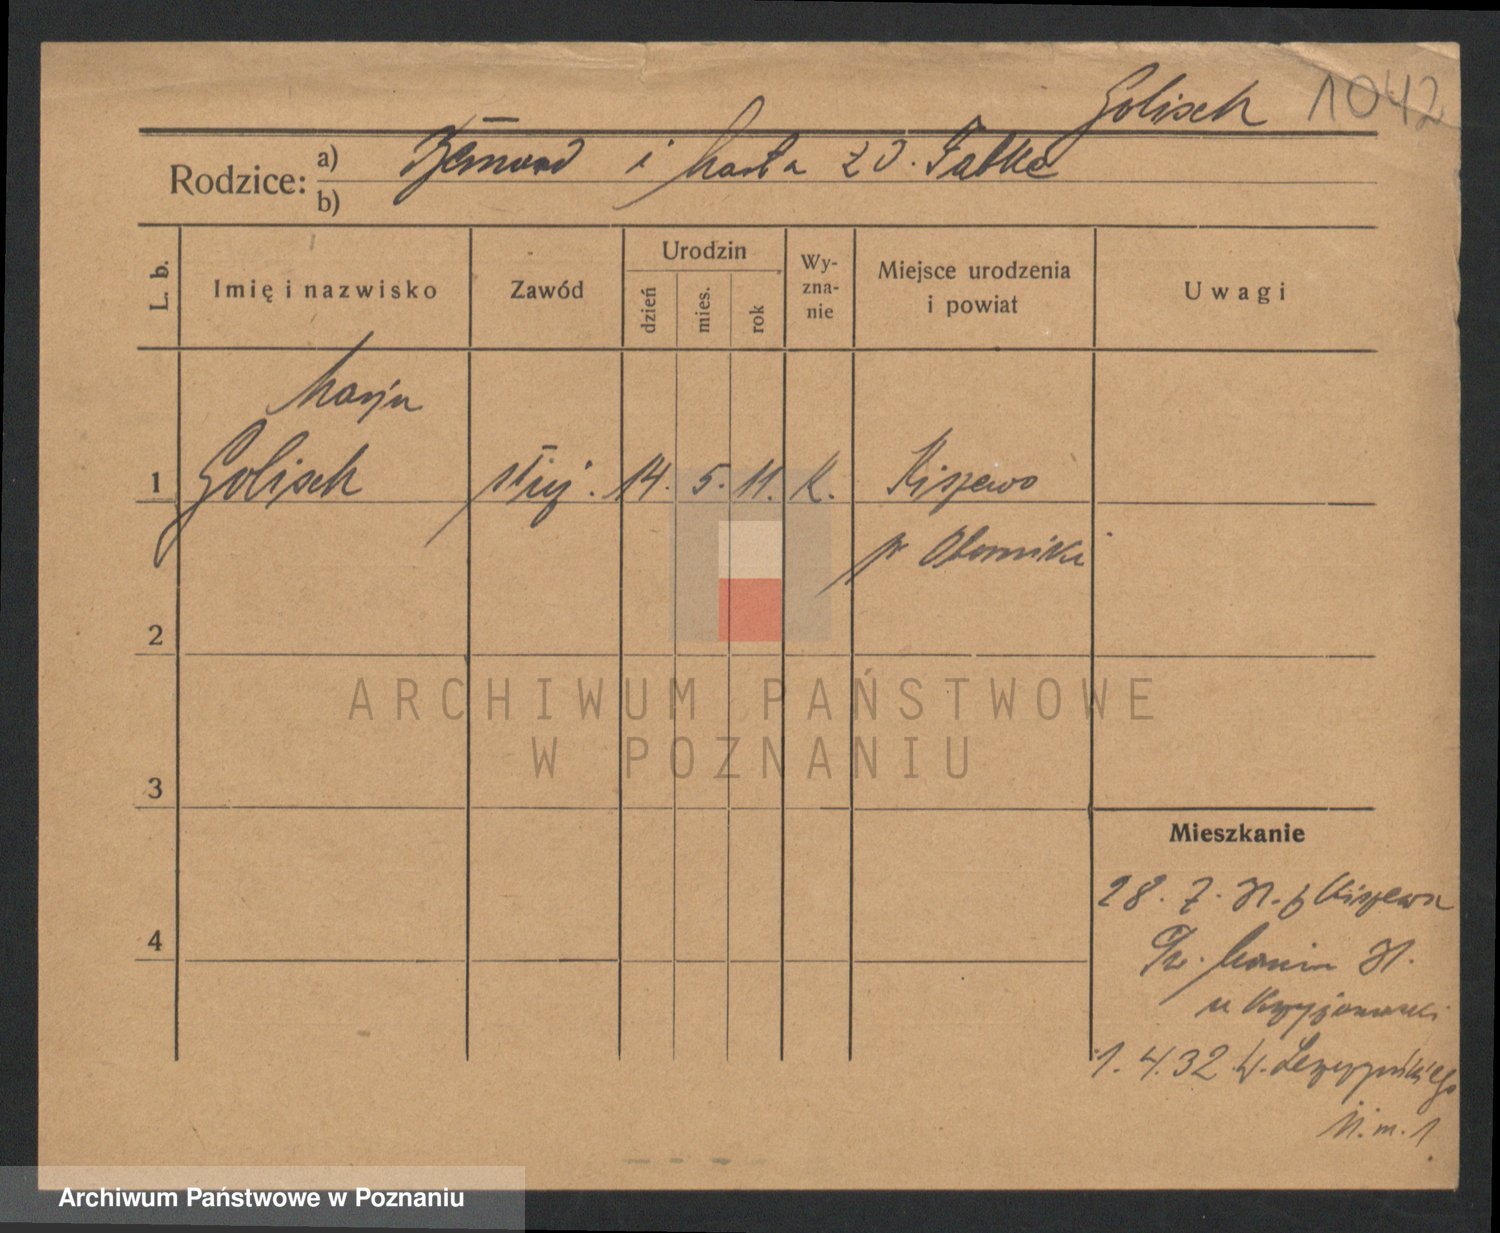 Golisch 1042
Rodzice: a) Bernard i Marta z d. Fabke
b)
L. b.
Imię i nazwisko
Zawód
Urodzin
dzień
mies.
rok
Wy-
zna-
nie
Miejsce urodzenia
i powiat
Uwagi
Marja
1 Golisch służ. 14. 5. 11. K. Kiszewo
p. Oborniki
2
3
4
ARCHIWUM PAŃSTWOWE
W POZNANIU
Mieszkanie
28. 7. 31. z Kiszewa
31.
u Krzyżanowski
1. 4. 32
m. 1
Archiwum Państwowe w Poznaniu